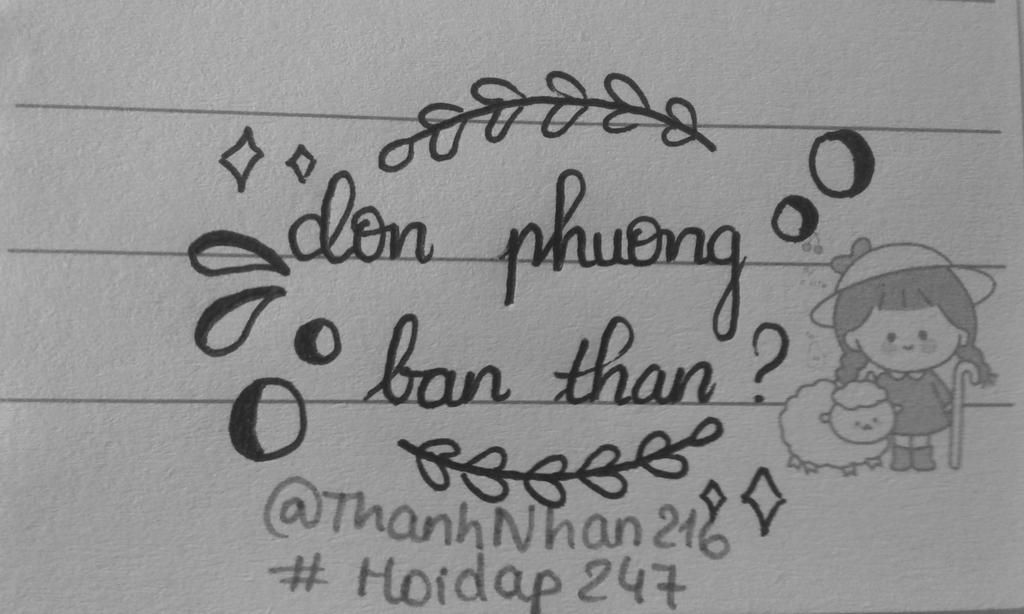 don phuong
ban than?
@ThanhNhan216
# Hoidap247